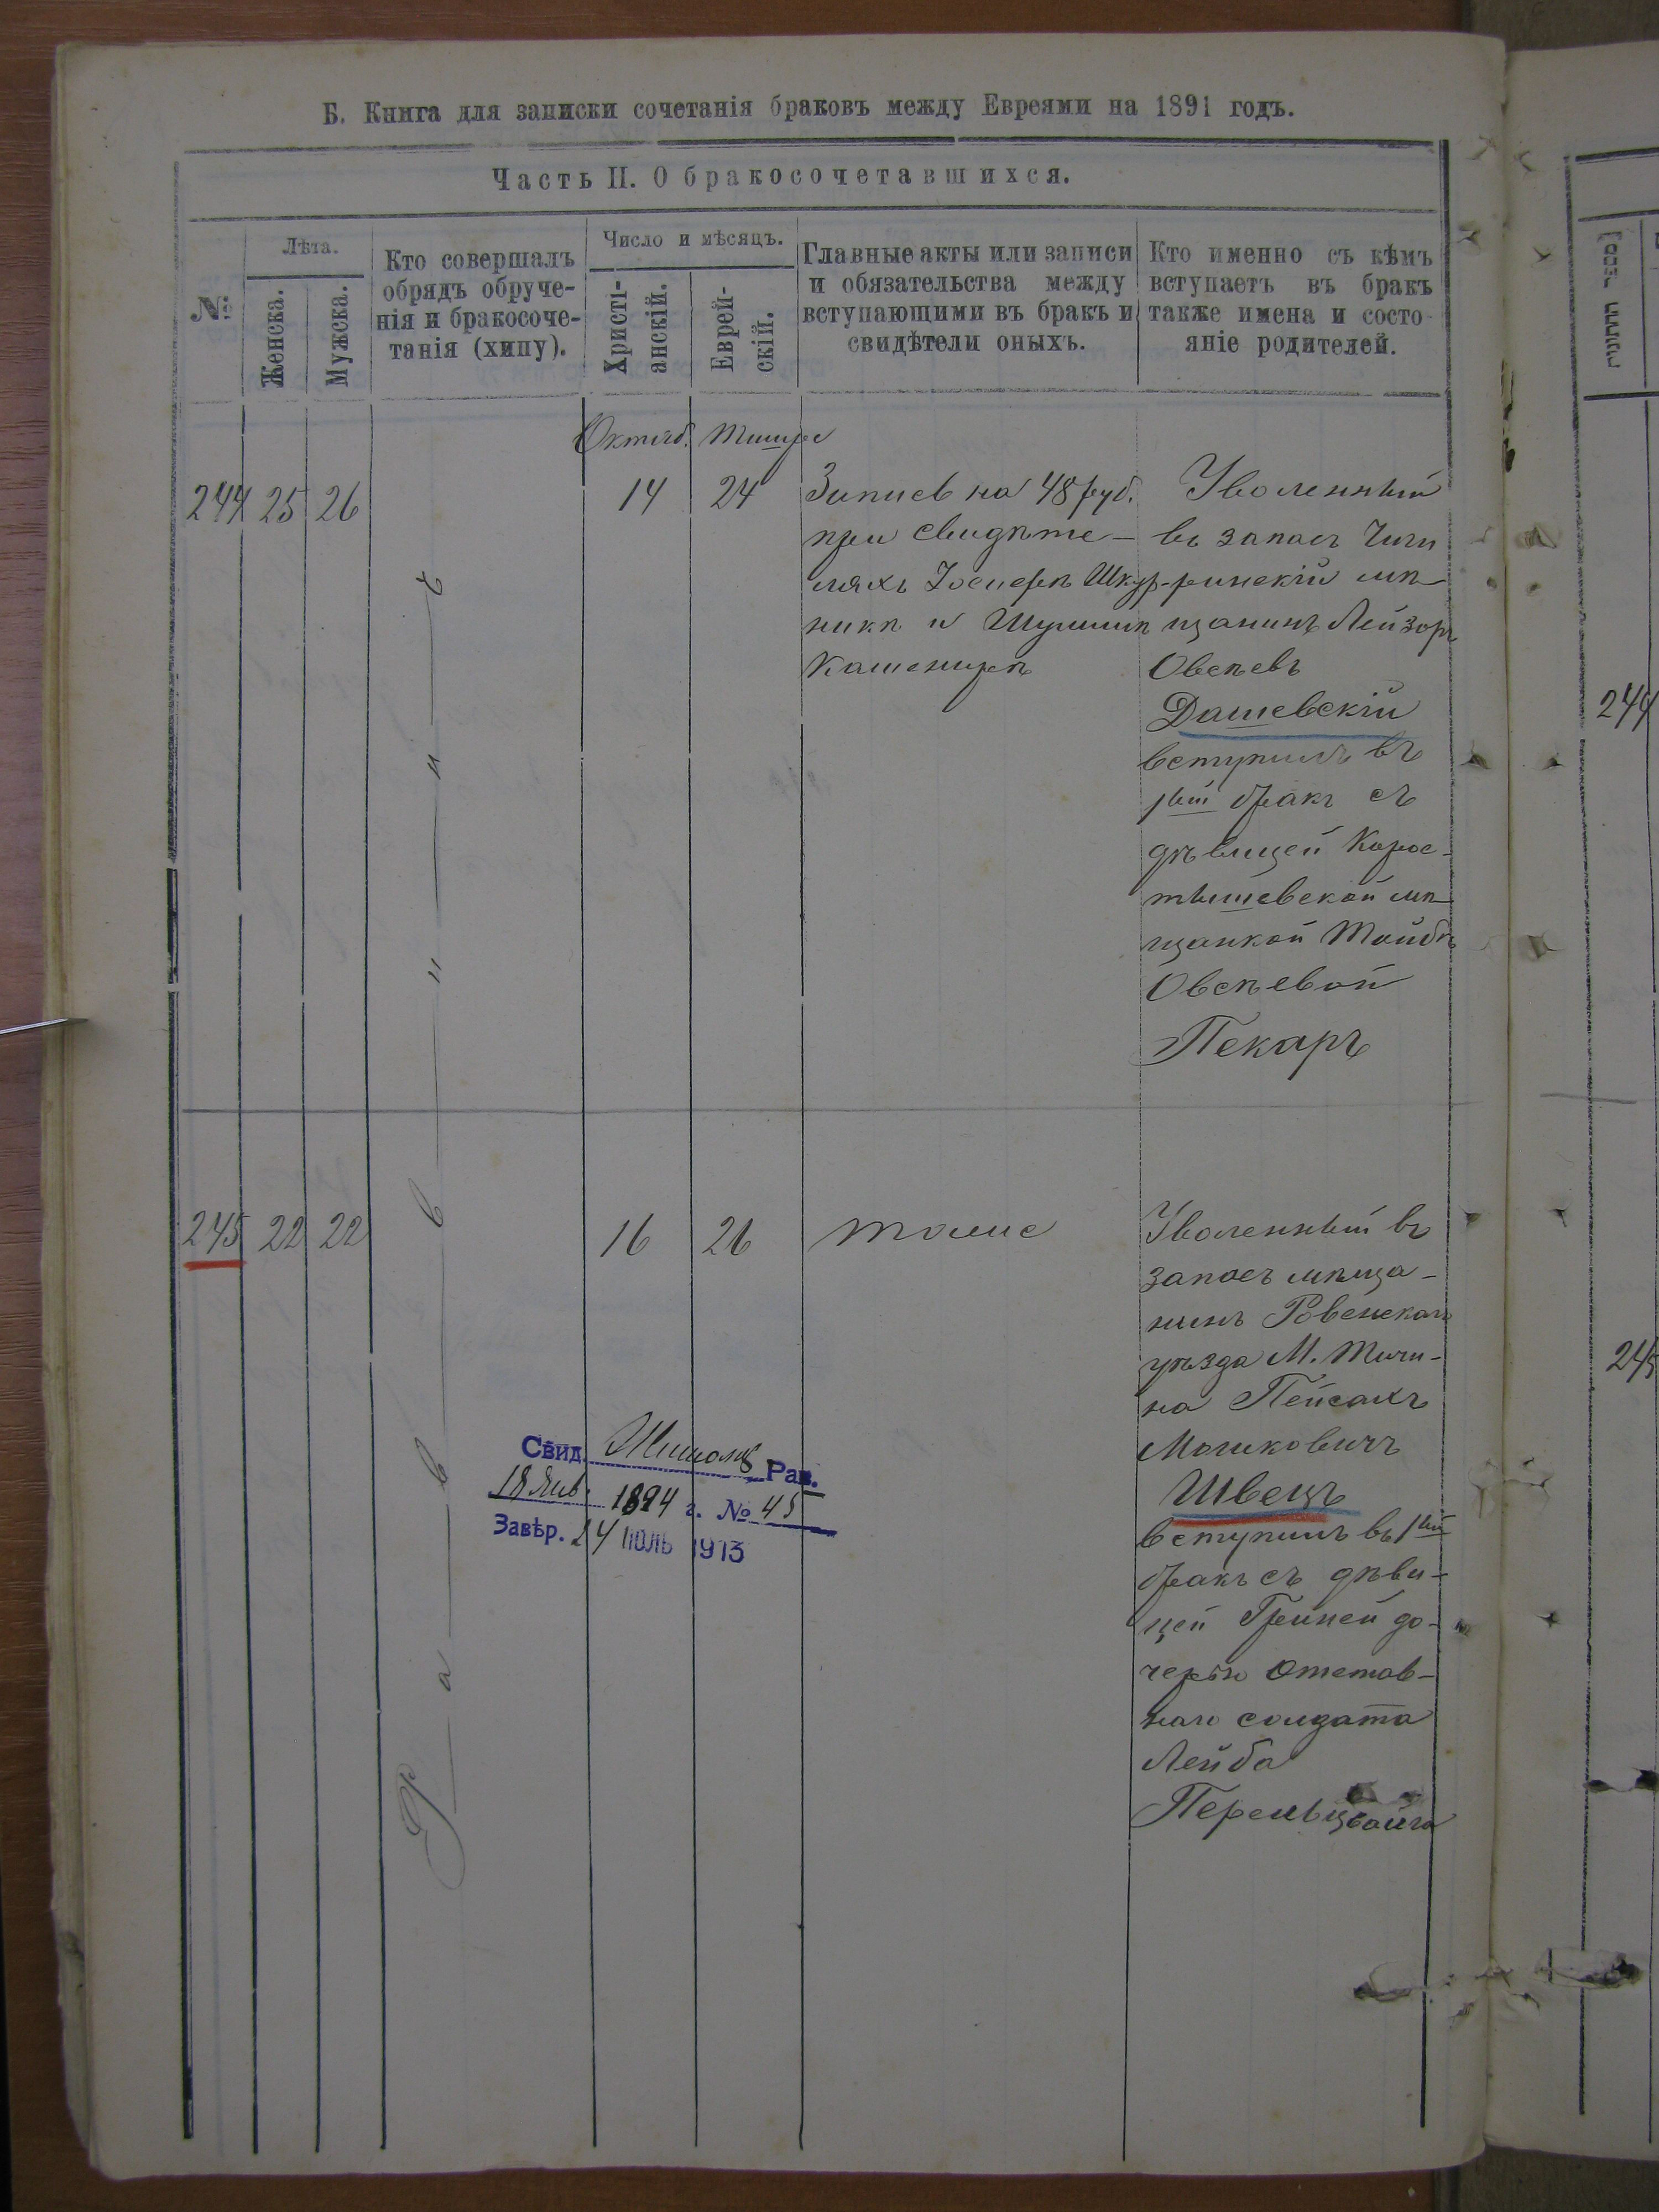 Б. Книга для записки сочетанія браковъ между Евреями на 1891 годъ.
Часть II. О бракосочетавшихся.
№
Лѣта.
Женска.
Мужска.
Кто совершалъ
обрядъ обруче-
нія и бракосоче-
танія (хипу).
Число и мѣсяцъ.
Христі-
анскій.
Еврей-
скій.
Главные акты или записи
и обязательства между
вступающими въ бракъ и
свидѣтели оныхъ.
Кто именно съ кѣмъ
вступаетъ въ бракъ
также имена и состо-
яніе родителей.
Октяб. Тишре
244 25 26
14 24
Запись на 48 руб.
при свидѣте-
ляхъ Іосифѣ Шкур-
никѣ и Шулимѣ
Кашенирѣ
Уволенный
въ запасъ Чиги
ринскій мѣ-
щанинъ Лейзоръ
Овсѣевъ
Дашевскій
вступилъ въ
1ый бракъ съ
дѣвицей Корос-
тышевской мѣ-
щанкой Тойбѣ
Овсѣевой
Пекаръ
245 22 22
16 26
тоже
Уволенный въ
запасъ мѣща-
нинъ Ровенскаго
уѣзда М. Тучи-
на Пейсахъ
Мошковичъ
Швецъ
вступилъ въ 1ый
бракъ съ дѣви-
цей Гриней до-
черью Отстав-
наго солдата
Лейба
Перельцвайга
Раввинъ
Свид. Рав.
18 Янв. 1894 г. № 45
Завѣр. 24 ІЮЛЬ 1913
244
245